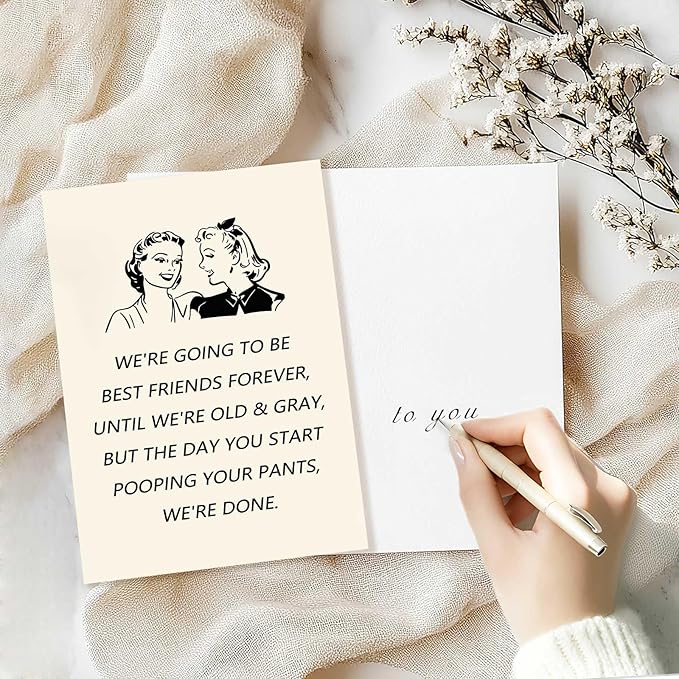 WE'RE GOING TO BE
BEST FRIENDS FOREVER,
UNTIL WE'RE OLD & GRAY,
BUT THE DAY YOU START
POOPING YOUR PANTS,
WE'RE DONE.
to you